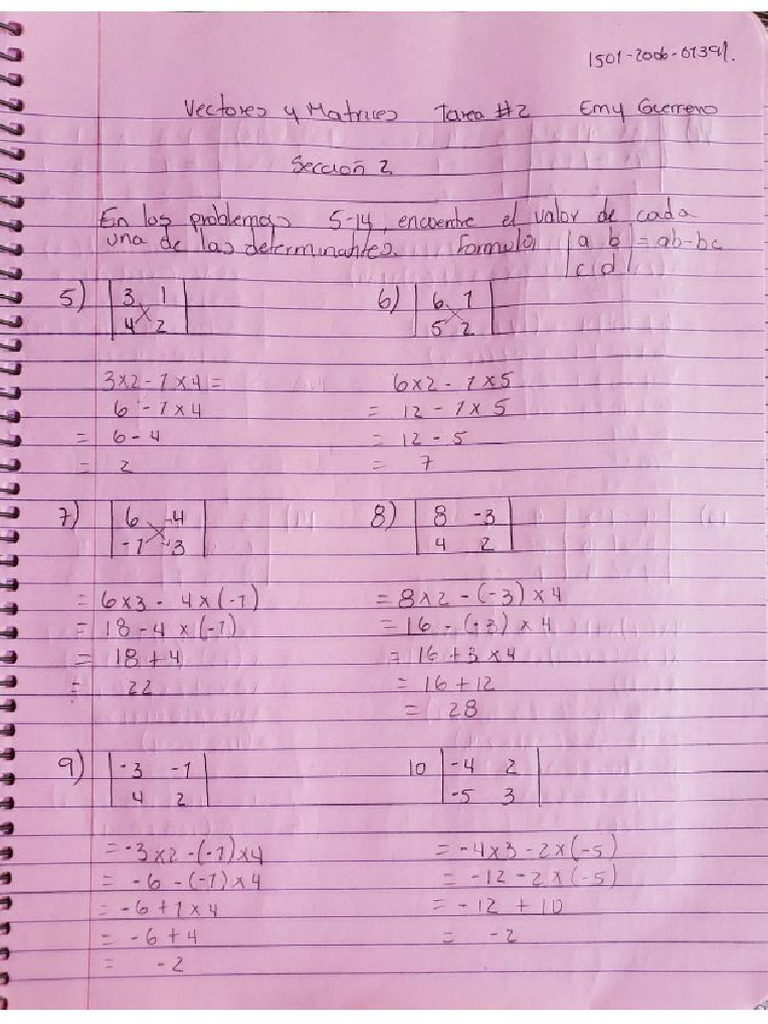 1501-2006-01391.
Vectores y Matrices Tarea #2 Emy Guerrero
Sección 2
En los problemas 5-14, encuentre el valor de cada
una de las determinantes. Formula |a b| = ab-bc
|c d|
5) |3 1| 6) |6 1|
|4 2| |5 2|
3x2-1x4= 6x2-1x5
6-1x4 = 12-1x5
= 6-4 = 12-5
= 2 = 7
7) |6 -4| 8) |8 -3|
|-1 3| |4 2|
= 6x3 - 4x(-1) = 8x2-(-3)x4
= 18-4x(-1) = 16-(-3)x4
= 18+4 = 16+3x4
= 22 = 16+12
= 28
9) |-3 -1| 10 |-4 2|
|4 2| |-5 3|
= -3x2-(-1)x4 = -4x3-2x(-5)
= -6-(-1)x4 = -12-2x(-5)
= -6+1x4 = -12+10
= -6+4 = -2
= -2